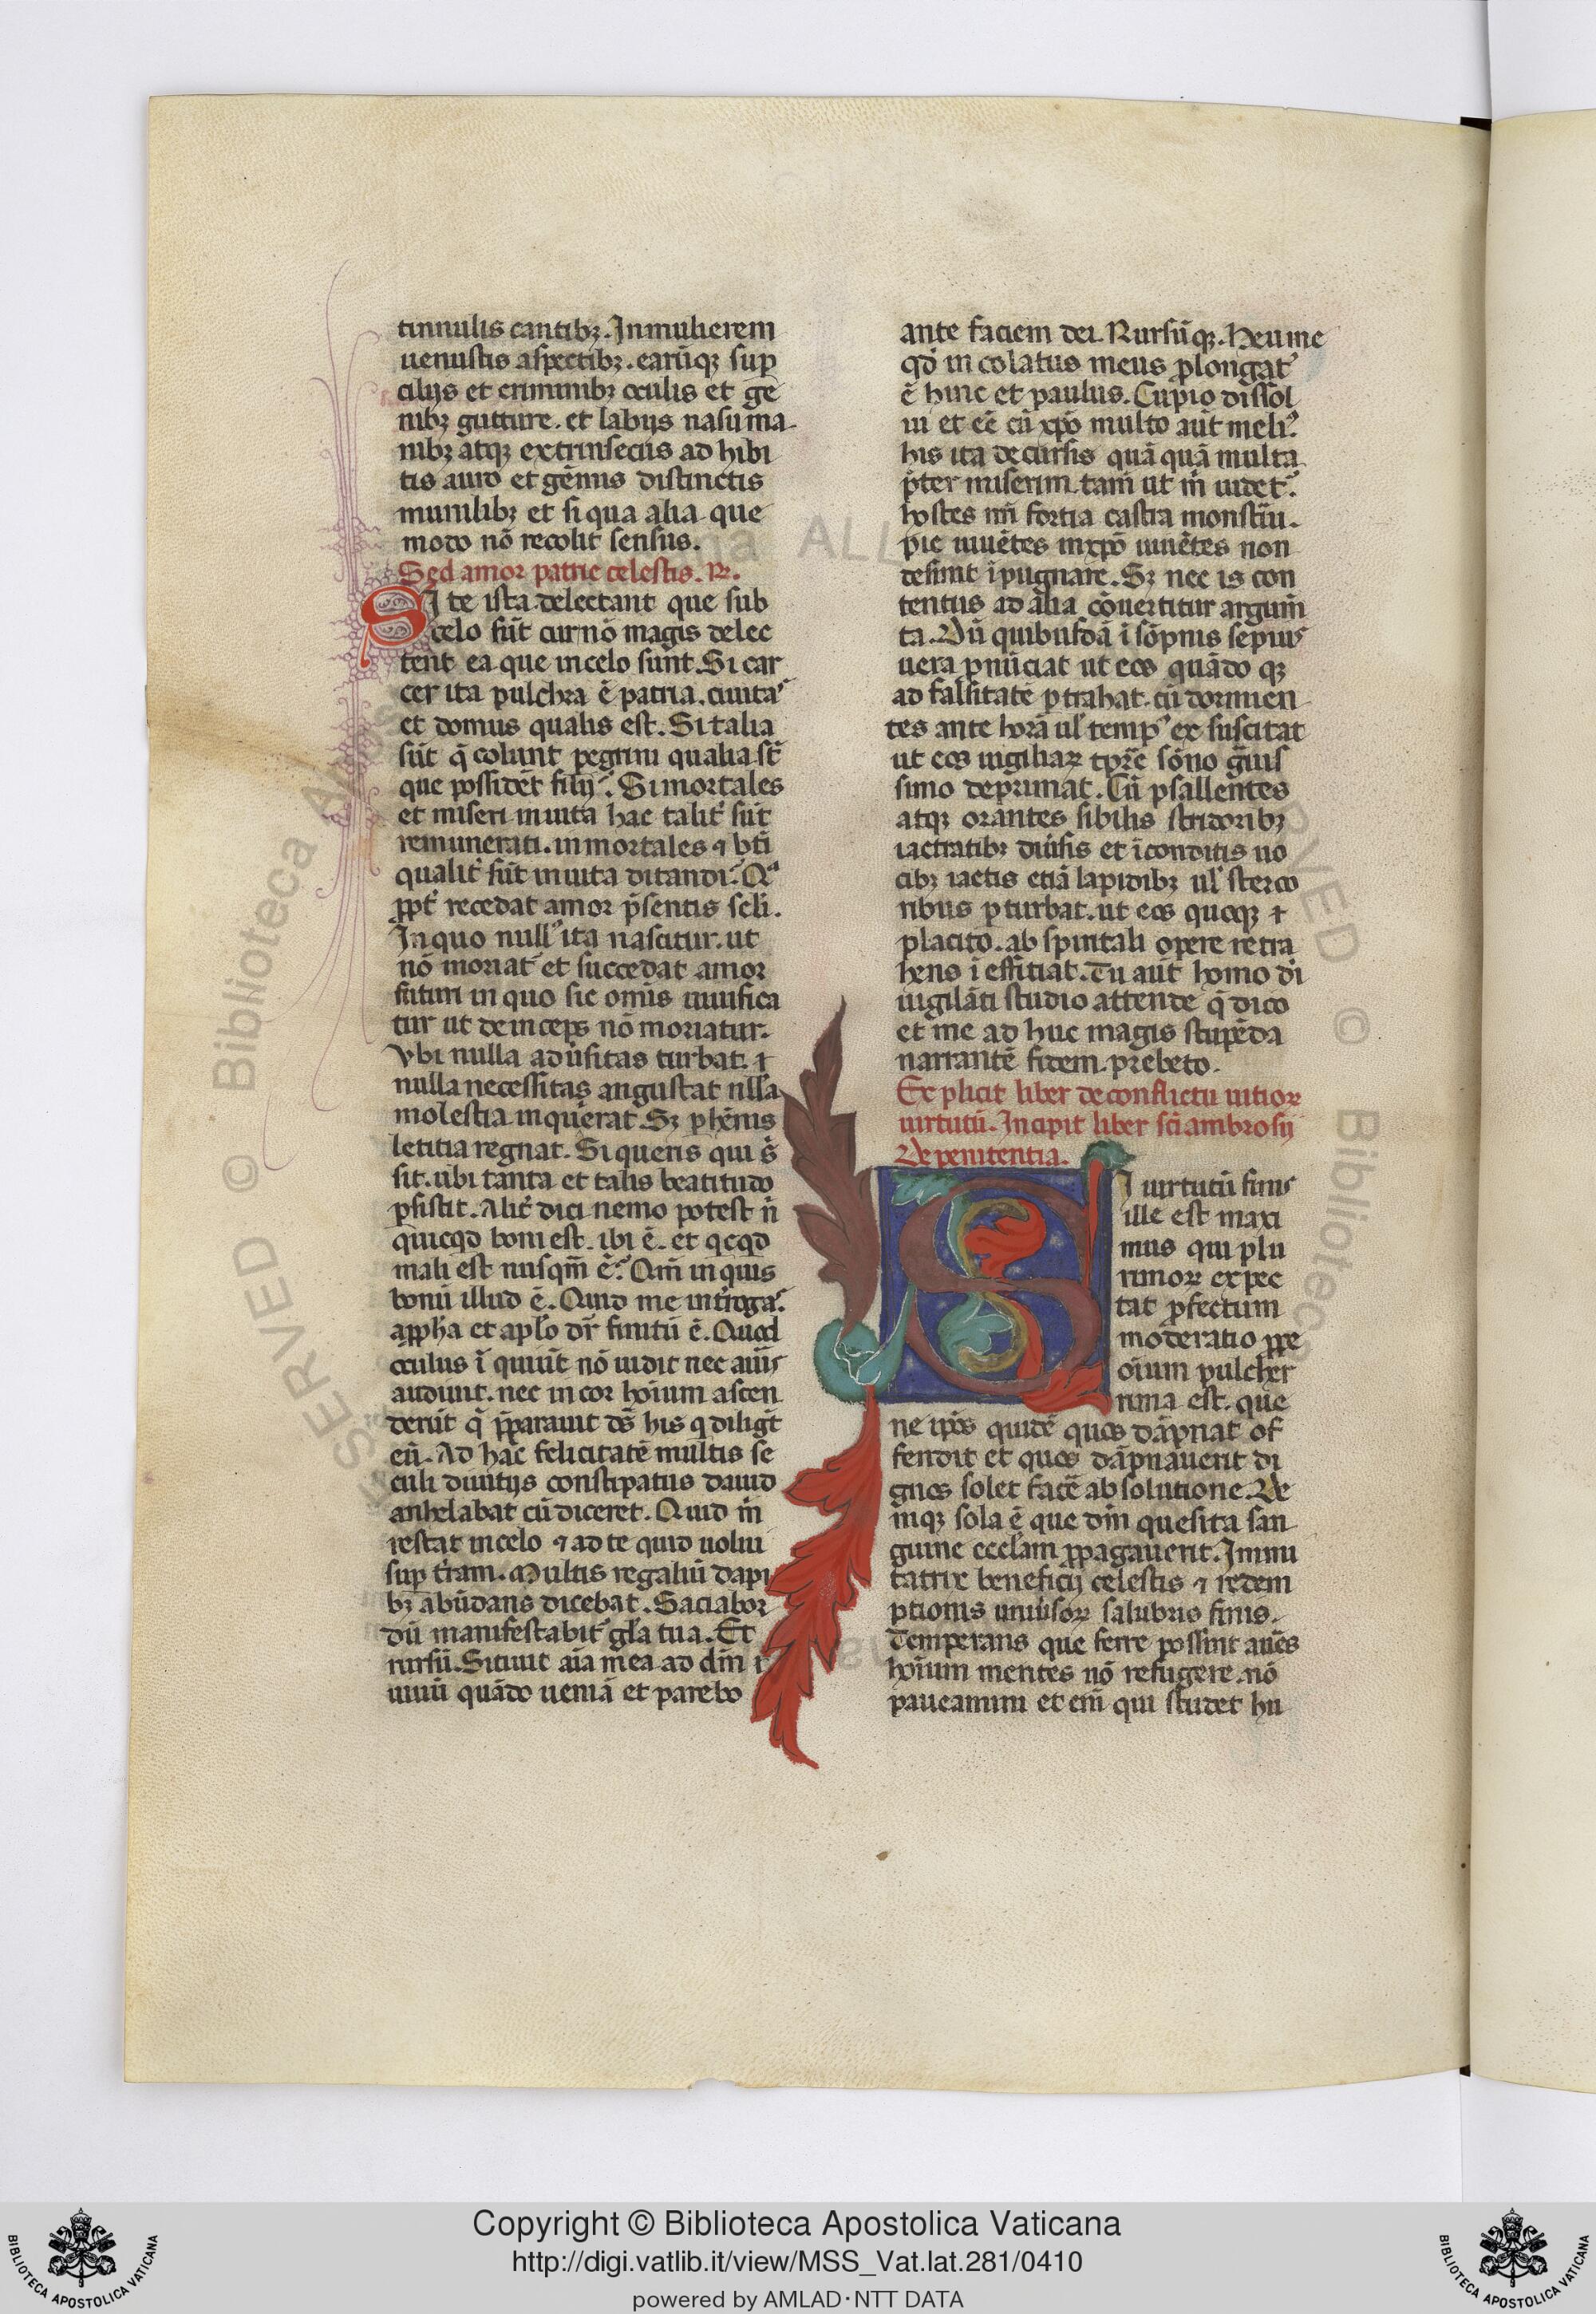 tinnulis cantibꝫ. In mulierem
uenustis aspectibꝫ. earūqꝫ suꝑ
cilijs et criminibꝫ oculis et ge
nibꝫ gutture. et labijs nasu ma
nibꝫ atqꝫ extrinsecus ad hibi
tis auro et gēmis distinctis
munilibꝫ et si qua alia que
modo nō recolit sensus.
Sed amor patrie celestis. R.
SI te ista delectant que sub
celo sūt cur nō magis delec
tent ea que in celo sunt. Si car
cer ita pulchra ē patria. ciuitas
et domus qualis est. Si talia
sūt q̄ colunt pegrini qualia st̄
que possidēt filij. Si mortales
et miseri in uita hac talit̓ sūt
remunerati. in mortales ⁊ bt̄i
qualit̓ sūt in uita ditandi. Qᵃ
ꝓpt̓ recedat amor p̄sentis scl̓i.
In quo null̓ ita nascitur. ut
nō moriat̓ et succedat amor
futuri in quo sic om̄s uiuifica
tur ut deinceps nō moriatur.
Vbi nulla adūsitas turbat. ⁊
nulla necessitas angustat nlla
molestia inquierat. Sꝫ ꝑhēnis
letitia regnat. Si queris qui s̓
sit. ubi tanta et talis beatitudo
ꝑsistit. Alit̓ dici nemo potest n̄
quicqd boni est. ibi ē. et qcqd
mali est nusqm̄ ē. Qm̄ inquis
bonū illud ē. Quid me int̓rogas.
a ꝓpha et aplo dr̄ finitū ē. Quod
oculus ī quiūt nō uidit nec auris
audiuit. nec in cor hoīum ascen
derūt q̄ p̄parauit ds̄ his q diligt̄
eū. Ad hāc felicitatē multis se
culi diuitijs constipatus dauid
anhelabat cū diceret. Quid m̄
restat in celo ⁊ ad te quid uolui
suꝑ t̓ram. Multis regaliū dapi
bꝫ abūdans dicebat. Saciabor
dū manifestabit̓ gl̓a tua. Et
rursū. Sitiuit aīa mea ad dm̄
uiuū quādo ueniā et parebo
ante faciem dei. Rursūqꝫ. Heu me
qd̓ in colatus meus ꝓlongat̓
ē hinc et paulus. Cupio dissol
ui et eē cū xp̄o multo aūt meli9.
his ita decursis quā quā multa
p̄ter miserim. tam̄ ut m̄ uidet̓.
hostes nr̄i fortia castra monstīu.
pie uiuētes in xp̄o uiuētes non
desinit īpugnare. Sꝫ nec is con
tentus ad alia cōuertitur argum̄
ta. Dū quibusdā ī sōpnis sepius
uera ꝓnūciat ut eos quādo qꝫ
ad falsitatē ꝑtrahat. cū dormien
tes ante horā ul̓ temp9 ex suscitat
ut eos uigiliaꝝ tp̄re sōno ḡuis
simo deprimat. Cū psallentes
atqꝫ orantes sibilis stridoribꝫ
iactratibꝫ diūsis et īconditis uo
cibꝫ iactis etiā lapidibꝫ ul̓ sterco
ribus ꝑturbat. ut eos quoqꝫ ⁊
placito. ab spirītali opere retra
hens ī efficiat. Tu aūt homo di
uigilāti studio attende q̄ dico
et me ad huc magis stupēda
narrantē fidem prebeto.
Explicit liber de conflictu uitioꝝ
uirtutū. Incipit liber scī ambrosij
De penitentia.
SI uirtutū finis
ille est maxi
mus qui plu
rimoꝝ expec
tat ꝓfectum
moderatio ꝓpe
oīum pulcher
rima est. que
ne ip̄os quidē quos dāpnat of
fendit et quos dāpnauerit di
gnos solet facē absolutione. De
inqꝫ sola ē que dn̄i quesita san
guine eccl̓am ꝓpagauerit. Immi
tatrix beneficij celestis ⁊ redem
ptionis uniūsoꝝ salubris finis.
Temperans que ferre possint aures
hoīum mentes nō refugere. nō
paueant ni et enī qui studet hu
Copyright © Biblioteca Apostolica Vaticana
http://digi.vatlib.it/view/MSS_Vat.lat.281/0410
powered by AMLAD·NTT DATA